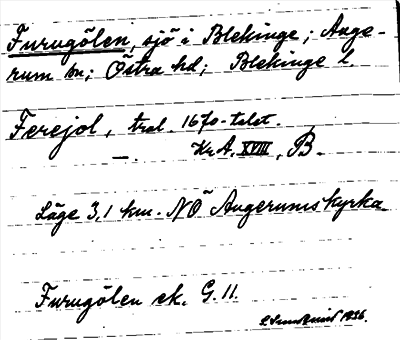 Furugölen, sjö i Blekinge; Auge-
rum sn; Östra hd; Blekinge l.
Ferejol, tral. 1670-talet.
— Kr.A. XVIII, B.
Läge 3,1 km. NÖ Augerums kyrka.
Furugölen ek. G. 11.
1936.